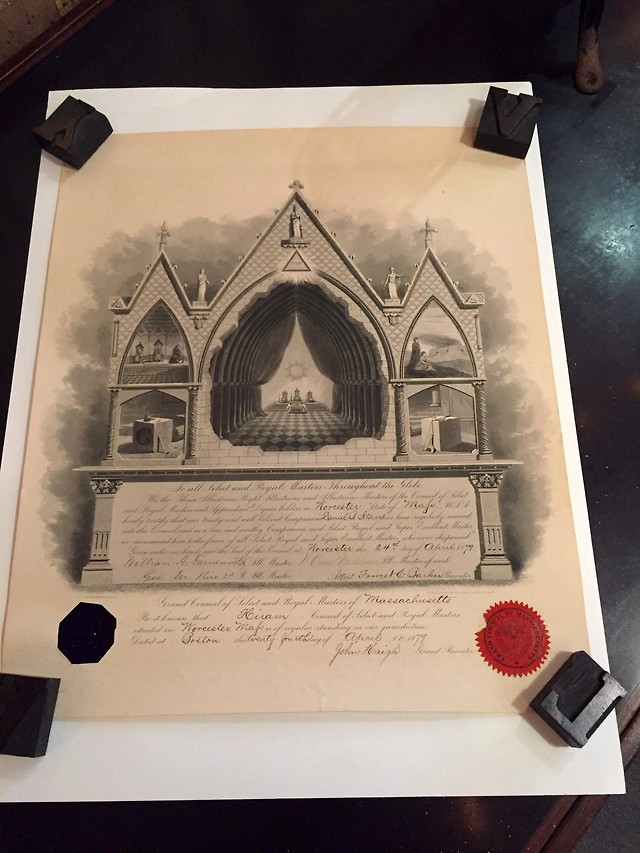 To all Select and Royal Masters Throughout the Globe
We the Thrice Illustrious Right Illustrious and Illustrious Masters of the Council of Select
and Royal Masters and Appendant Degrees holden in Worcester State of Mass. U.S.A.
hereby certify that our trusty and well beloved Companion Daniel S. has been regularly
this Council and is a true and worthy Companion and Select Royal and Super Excellent Master
we recommend him to the favor of all Select Royal and Super Excellent Masters, wherever dispersed
Given under our hands and the Seal of the Council at Worcester the 24th day of April 1879
William A. Farnsworth Ill. Master Ill. Master of work
Geo. 2d R. Ill. Master Attest Forrest E. Barker Recorder
Grand Council of Select and Royal Masters of Massachusetts
Be it known that Hiram Council of Select and Royal Masters
situated in Worcester Mass is of regular standing in our jurisdiction
Dated at Boston the twenty fourth day of April A.D. 1879
John Haigh Grand Recorder
A
V
L